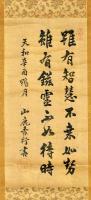 雖有智慧不如勢
雖有鎡不如待時
天和辛酉月
山鹿素行書